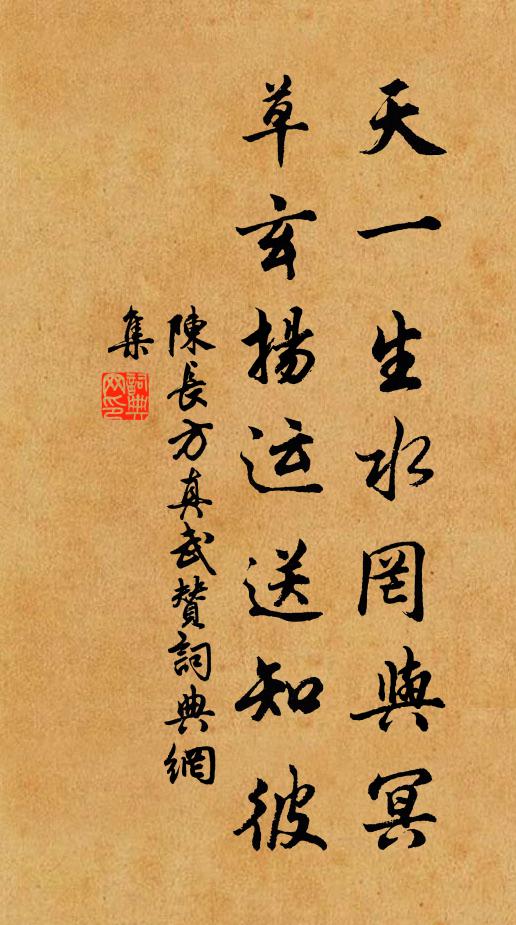 天一生水罔與冥
草玄揚运送知彼
陳長方真武贊詞典網
集
詞典网印